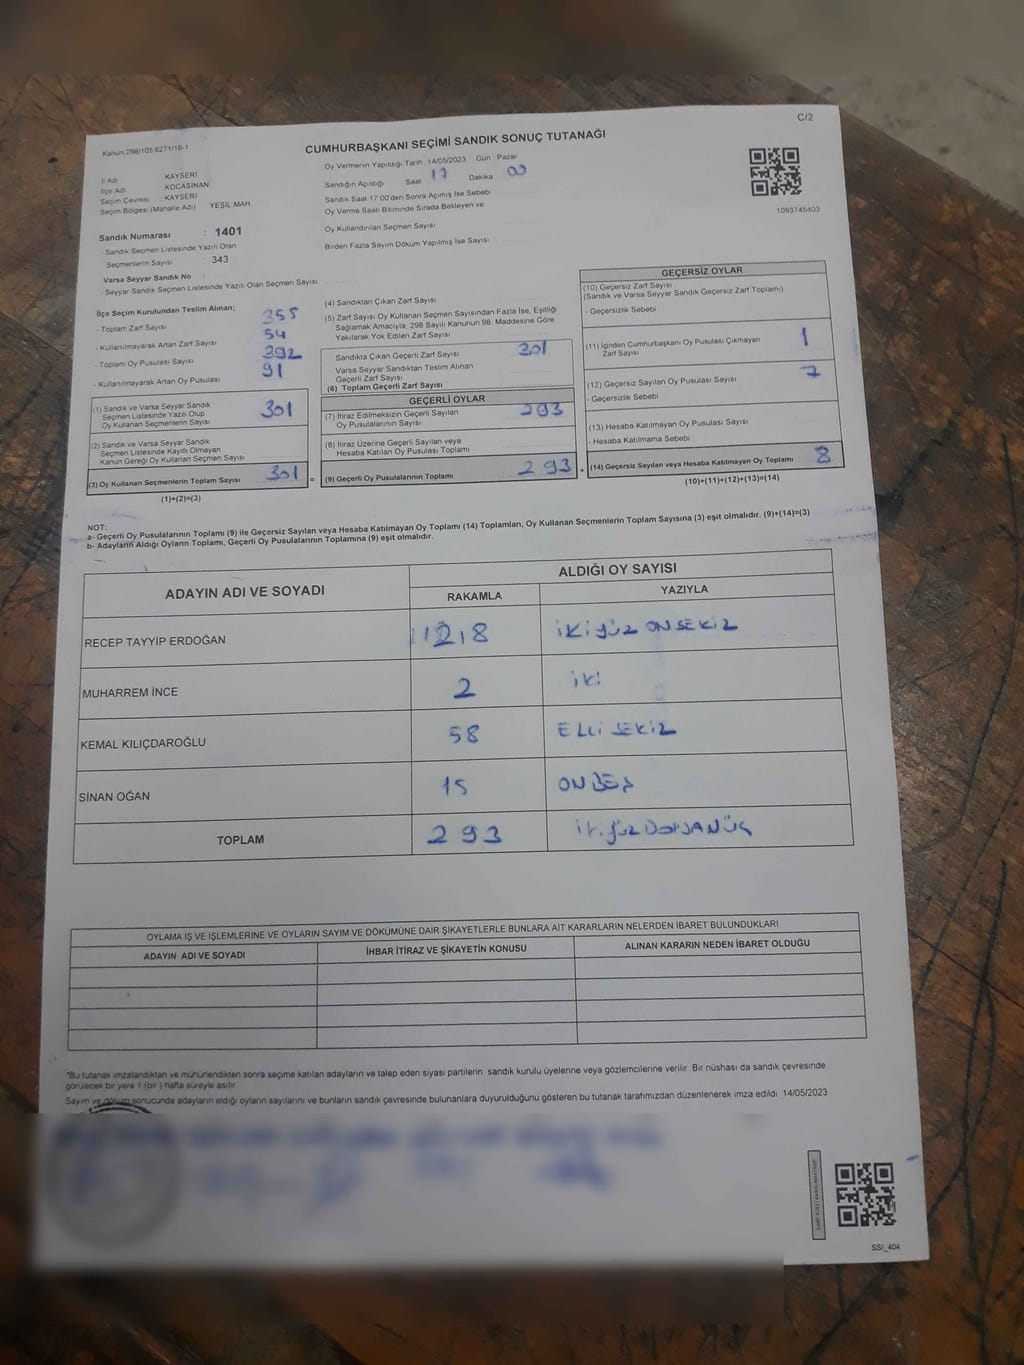 C/2
Kanun 298/105 6271/18-1
CUMHURBAŞKANI SEÇİMİ SANDIK SONUÇ TUTANAĞI
İl Adı KAYSERİ
İlçe Adı KOCASİNAN
Seçim Çevresi : KAYSERİ
Seçim Bölgesi (Mahalle Adı) YEŞİL MAH
Sandık Numarası : 1401
- Sandık Seçmen Listesinde Yazılı Olan
Seçmenlerin Sayısı : 343
Varsa Seyyar Sandık No :
- Seyyar Sandık Seçmen Listesinde Yazılı Olan Seçmen Sayısı
Oy Vermenin Yapıldığı Tarih 14/05/2023 Gün Pazar
Sandığın Açıldığı Saat 17 Dakika 00
Sandık Saat 17 00'den Sonra Açımış İse Sebebi
Oy Verme Saati Bitiminde Sırada Bekleyen ve
Oy Kullandırılan Seçmen Sayısı
Birden Fazla Sayım Döküm Yapılmış İse Sayısı
1093745403
İlçe Seçim Kurulundan Teslim Alınan;
- Toplam Zarf Sayısı 355
- Kullanılmayarak Artan Zarf Sayısı 54
- Toplam Oy Pusulası Sayısı 392
- Kullanılmayarak Artan Oy Pusulası 91
(1) Sandık ve Varsa Seyyar Sandık
Seçmen Listesinde Yazılı Olup
Oy Kullanan Seçmenlerin Sayısı 301
(2) Sandık ve Varsa Seyyar Sandık
Seçmen Listesinde Kayıtlı Olmayan
Kanun Gereği Oy Kullanan Seçmen Sayısı
(3) Oy Kullanan Seçmenlerin Toplam Sayısı 301 =
(1)+(2)=(3)
(4) Sandıktan Çıkan Zarf Sayısı
(5) Zarf Sayısı Oy Kullanan Seçmen Sayısından Fazla İse, Eşitliği
Sağlamak Amacıyla, 298 Sayılı Kanunun 98. Maddesine Göre
Yakılarak Yok Edilen Zarf Sayısı
Sandıkta Çıkan Geçerli Zarf Sayısı 301
Varsa Seyyar Sandıktan Teslim Alınan
Geçerli Zarf Sayısı
(6) Toplam Geçerli Zarf Sayısı
GEÇERLİ OYLAR
(7) İtiraz Edilmeksizin Geçerli Sayılan
Oy Pusulalarının Sayısı 293
(8) İtiraz Üzerine Geçerli Sayılan veya
Hesaba Katılan Oy Pusulası Toplamı
(9) Geçerli Oy Pusulalarının Toplamı 293 +
GEÇERSİZ OYLAR
(10) Geçersiz Zarf Sayısı
(Sandık ve Varsa Seyyar Sandık Geçersiz Zarf Toplamı)
- Geçersizlik Sebebi
(11) İçinden Cumhurbaşkanı Oy Pusulası Çıkmayan
Zarf Sayısı 1
(12) Geçersiz Sayılan Oy Pusulası Sayısı 7
- Geçersizlik Sebebi
(13) Hesaba Katılmayan Oy Pusulası Sayısı
- Hesaba Katılmama Sebebi
(14) Geçersiz Sayılan veya Hesaba Katılmayan Oy Toplamı 8
(10)+(11)+(12)+(13)=(14)
NOT:
a- Geçerli Oy Pusulalarının Toplamı (9) ile Geçersiz Sayılan veya Hesaba Katılmayan Oy Toplamı (14) Toplamları, Oy Kullanan Seçmenlerin Toplam Sayısına (3) eşit olmalıdır. (9)+(14)=(3)
b- Adayların Aldığı Oyların Toplamı, Geçerli Oy Pusulalarının Toplamına (9) eşit olmalıdır.
ADAYIN ADI VE SOYADI ALDIĞI OY SAYISI
RAKAMLA YAZIYLA
RECEP TAYYİP ERDOĞAN 218 İKİ YÜZ ON SEKİZ
MUHARREM İNCE 2 İKİ
KEMAL KILIÇDAROĞLU 58 ELLİ SEKİZ
SİNAN OĞAN 15 ON BEŞ
TOPLAM 293 İKİ YÜZ DOKSAN ÜÇ
OYLAMA İŞ VE İŞLEMLERİNE VE OYLARIN SAYIM VE DÖKÜMÜNE DAİR ŞİKAYETLERLE BUNLARA AİT KARARLARIN NELERDEN İBARET BULUNDUKLARI
ADAYIN ADI VE SOYADI İHBAR İTİRAZ VE ŞİKAYETİN KONUSU ALINAN KARARIN NEDEN İBARET OLDUĞU
*Bu tutanak imzalandıktan ve mühürlendikten sonra seçime katılan adayların ve talep eden siyasi partilerin sandık kurulu üyelerine veya gözlemcilerine verilir. Bir nüshası da sandık çevresinde
görülecek bir yere 1 (bir) hafta süreyle asılır
Sayım ve döküm sonucunda adayların aldığı oyların sayılarını ve bunların sandık çevresinde bulunanlara duyurulduğunu gösteren bu tutanak tarafımızdan düzenlenerek imza edildi. 14/05/2023
SSI_404